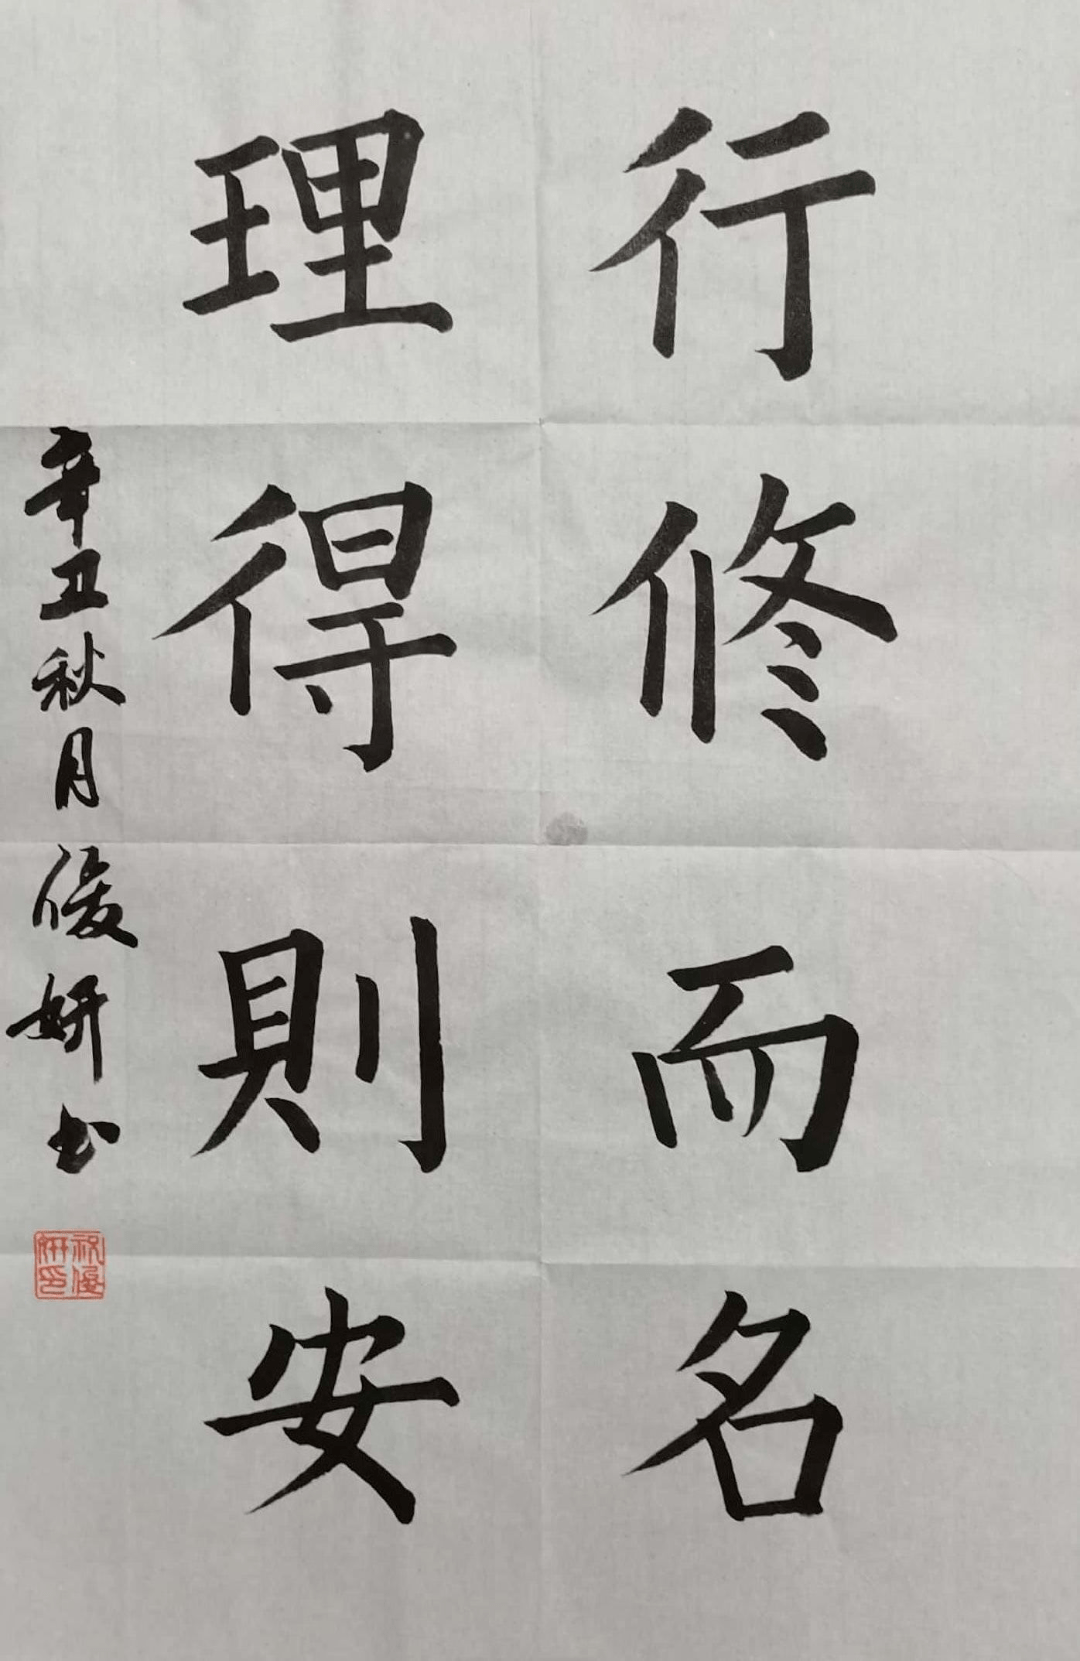 行修而名
理得則安
辛丑秋月優妍书
祝優
妍印